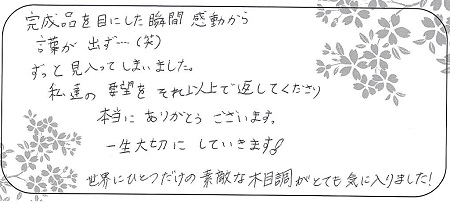 完成品を目にした瞬間 感動から
言葉が 出ず…(笑)
ずっと 見入ってしまいました。
私達の 要望を それ以上で 返してくださり
本当に ありがとう ございます。
一生大切に していきます!
世界にひとつだけの 素敵な木目調が とても 気に入りました!